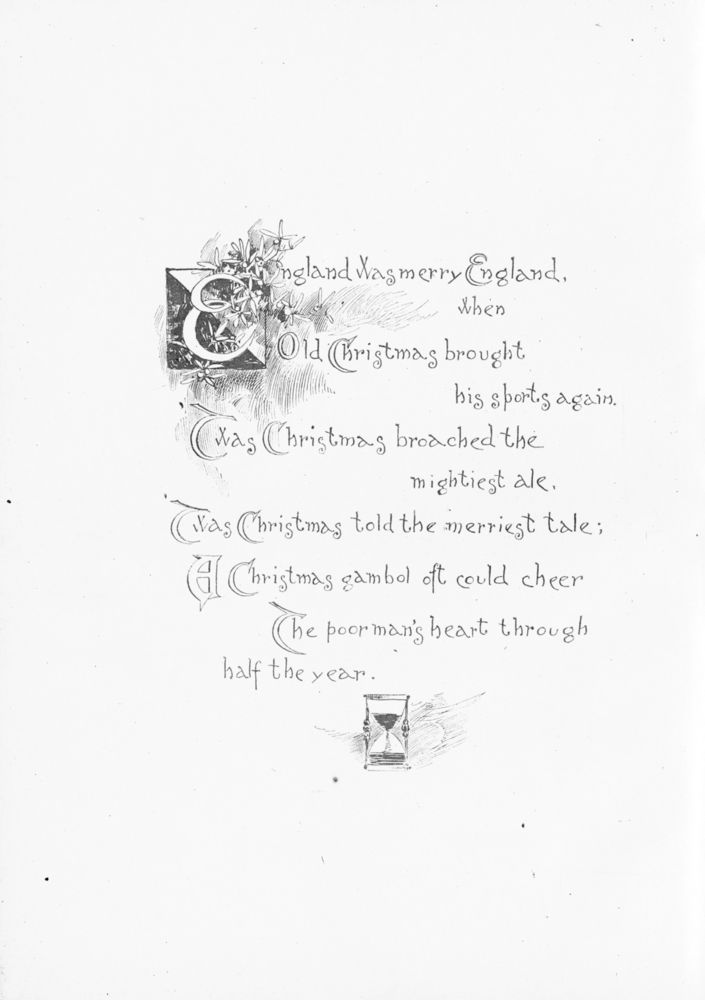 England was merry England,
when
Old Christmas brought
his sports again.
'Twas Christmas broached the
mightiest ale,
'Twas Christmas told the merriest tale;
A Christmas gambol oft could cheer
The poor man's heart through
half the year.